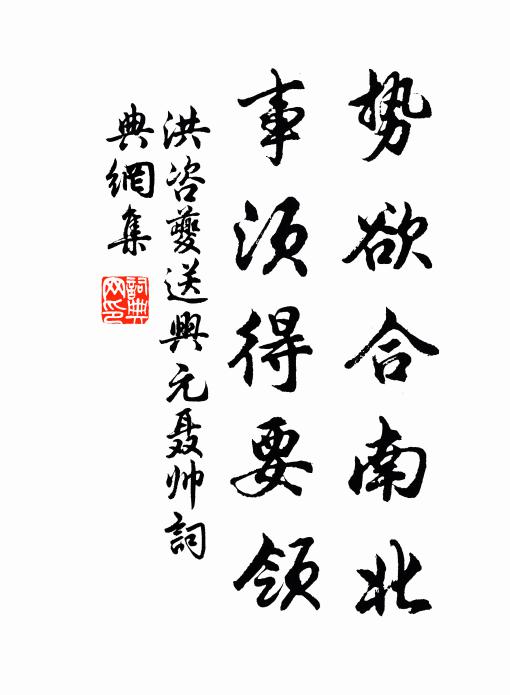 势欲合南北
事须得要领
洪咨夔送興元聂帅詞
典網集
詞典网印